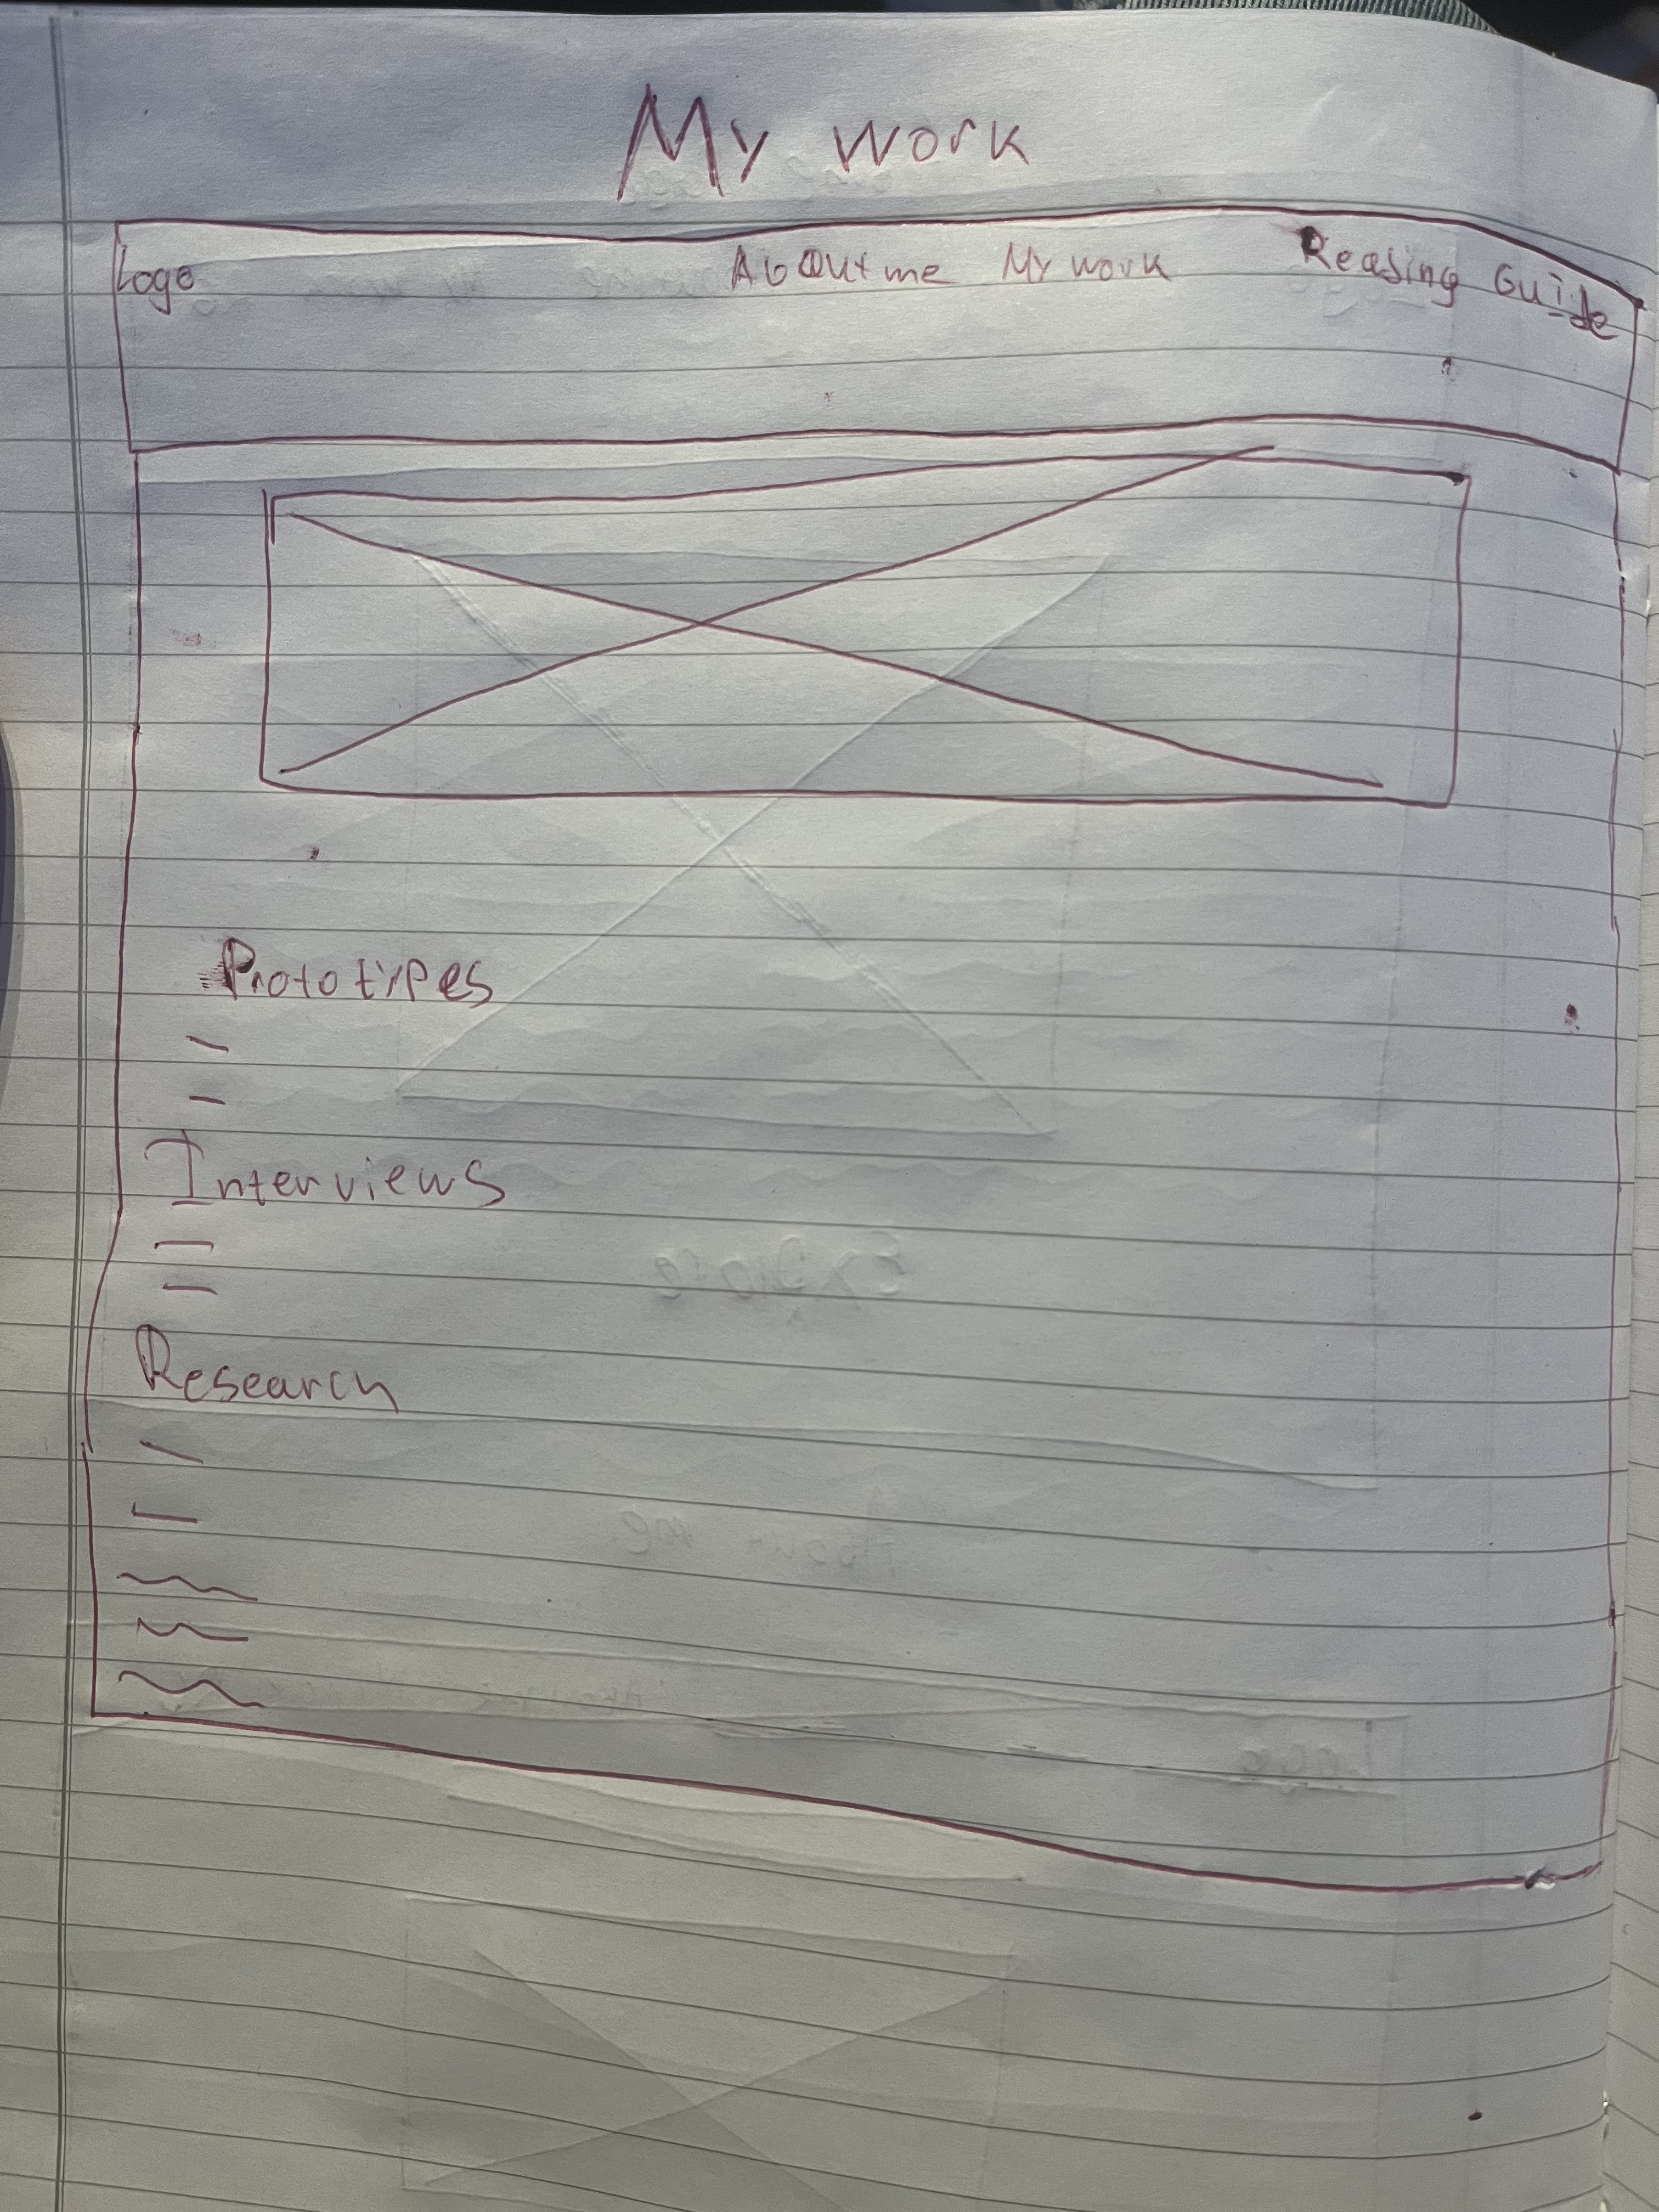 My work
Logo About me My work Reading Guide
Prototypes
Interviews
Research